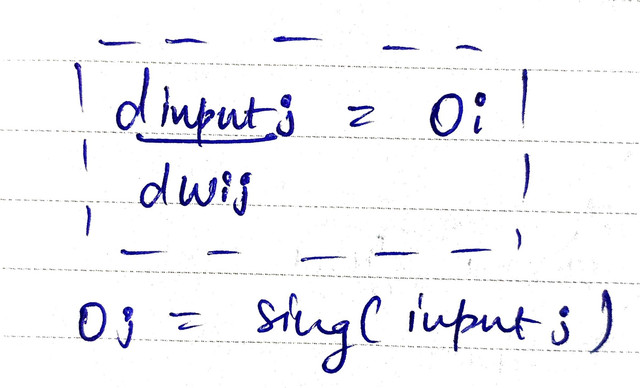 dinputj = Oi
dwij
Oj = sing(inputj)